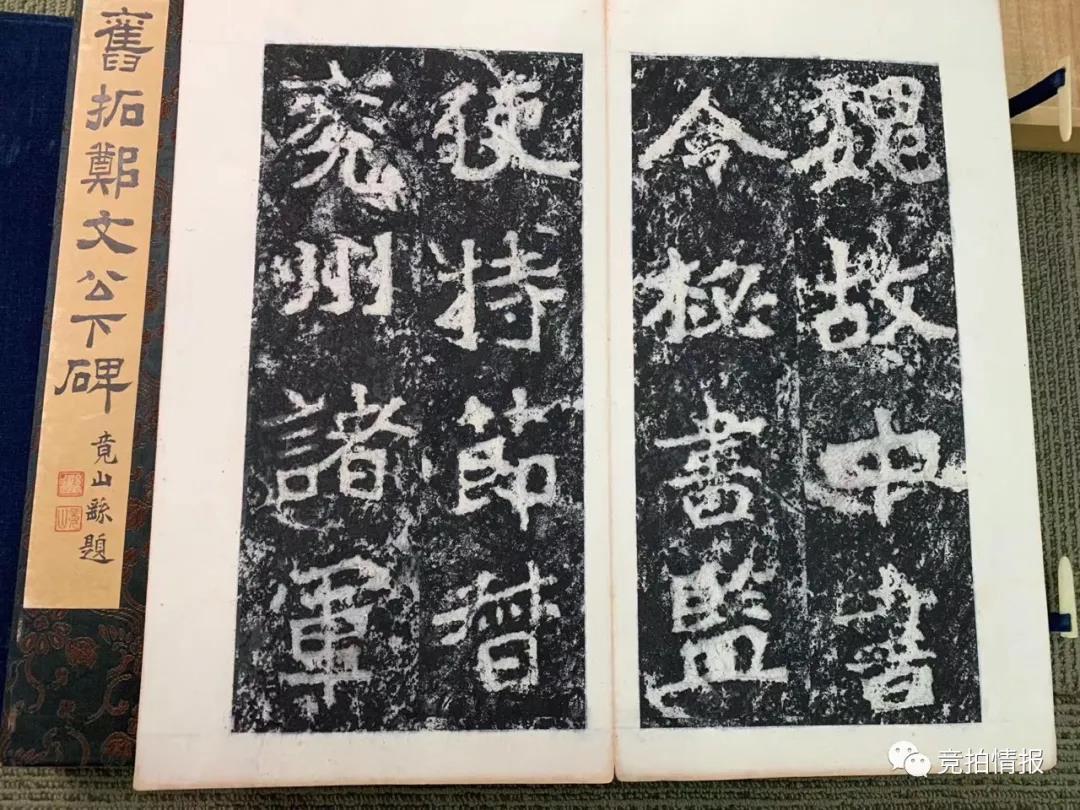 舊拓鄭文公下碑
竟山繇題
魏故中書
令秘書監
使持節督
兗州諸軍
竞拍情报